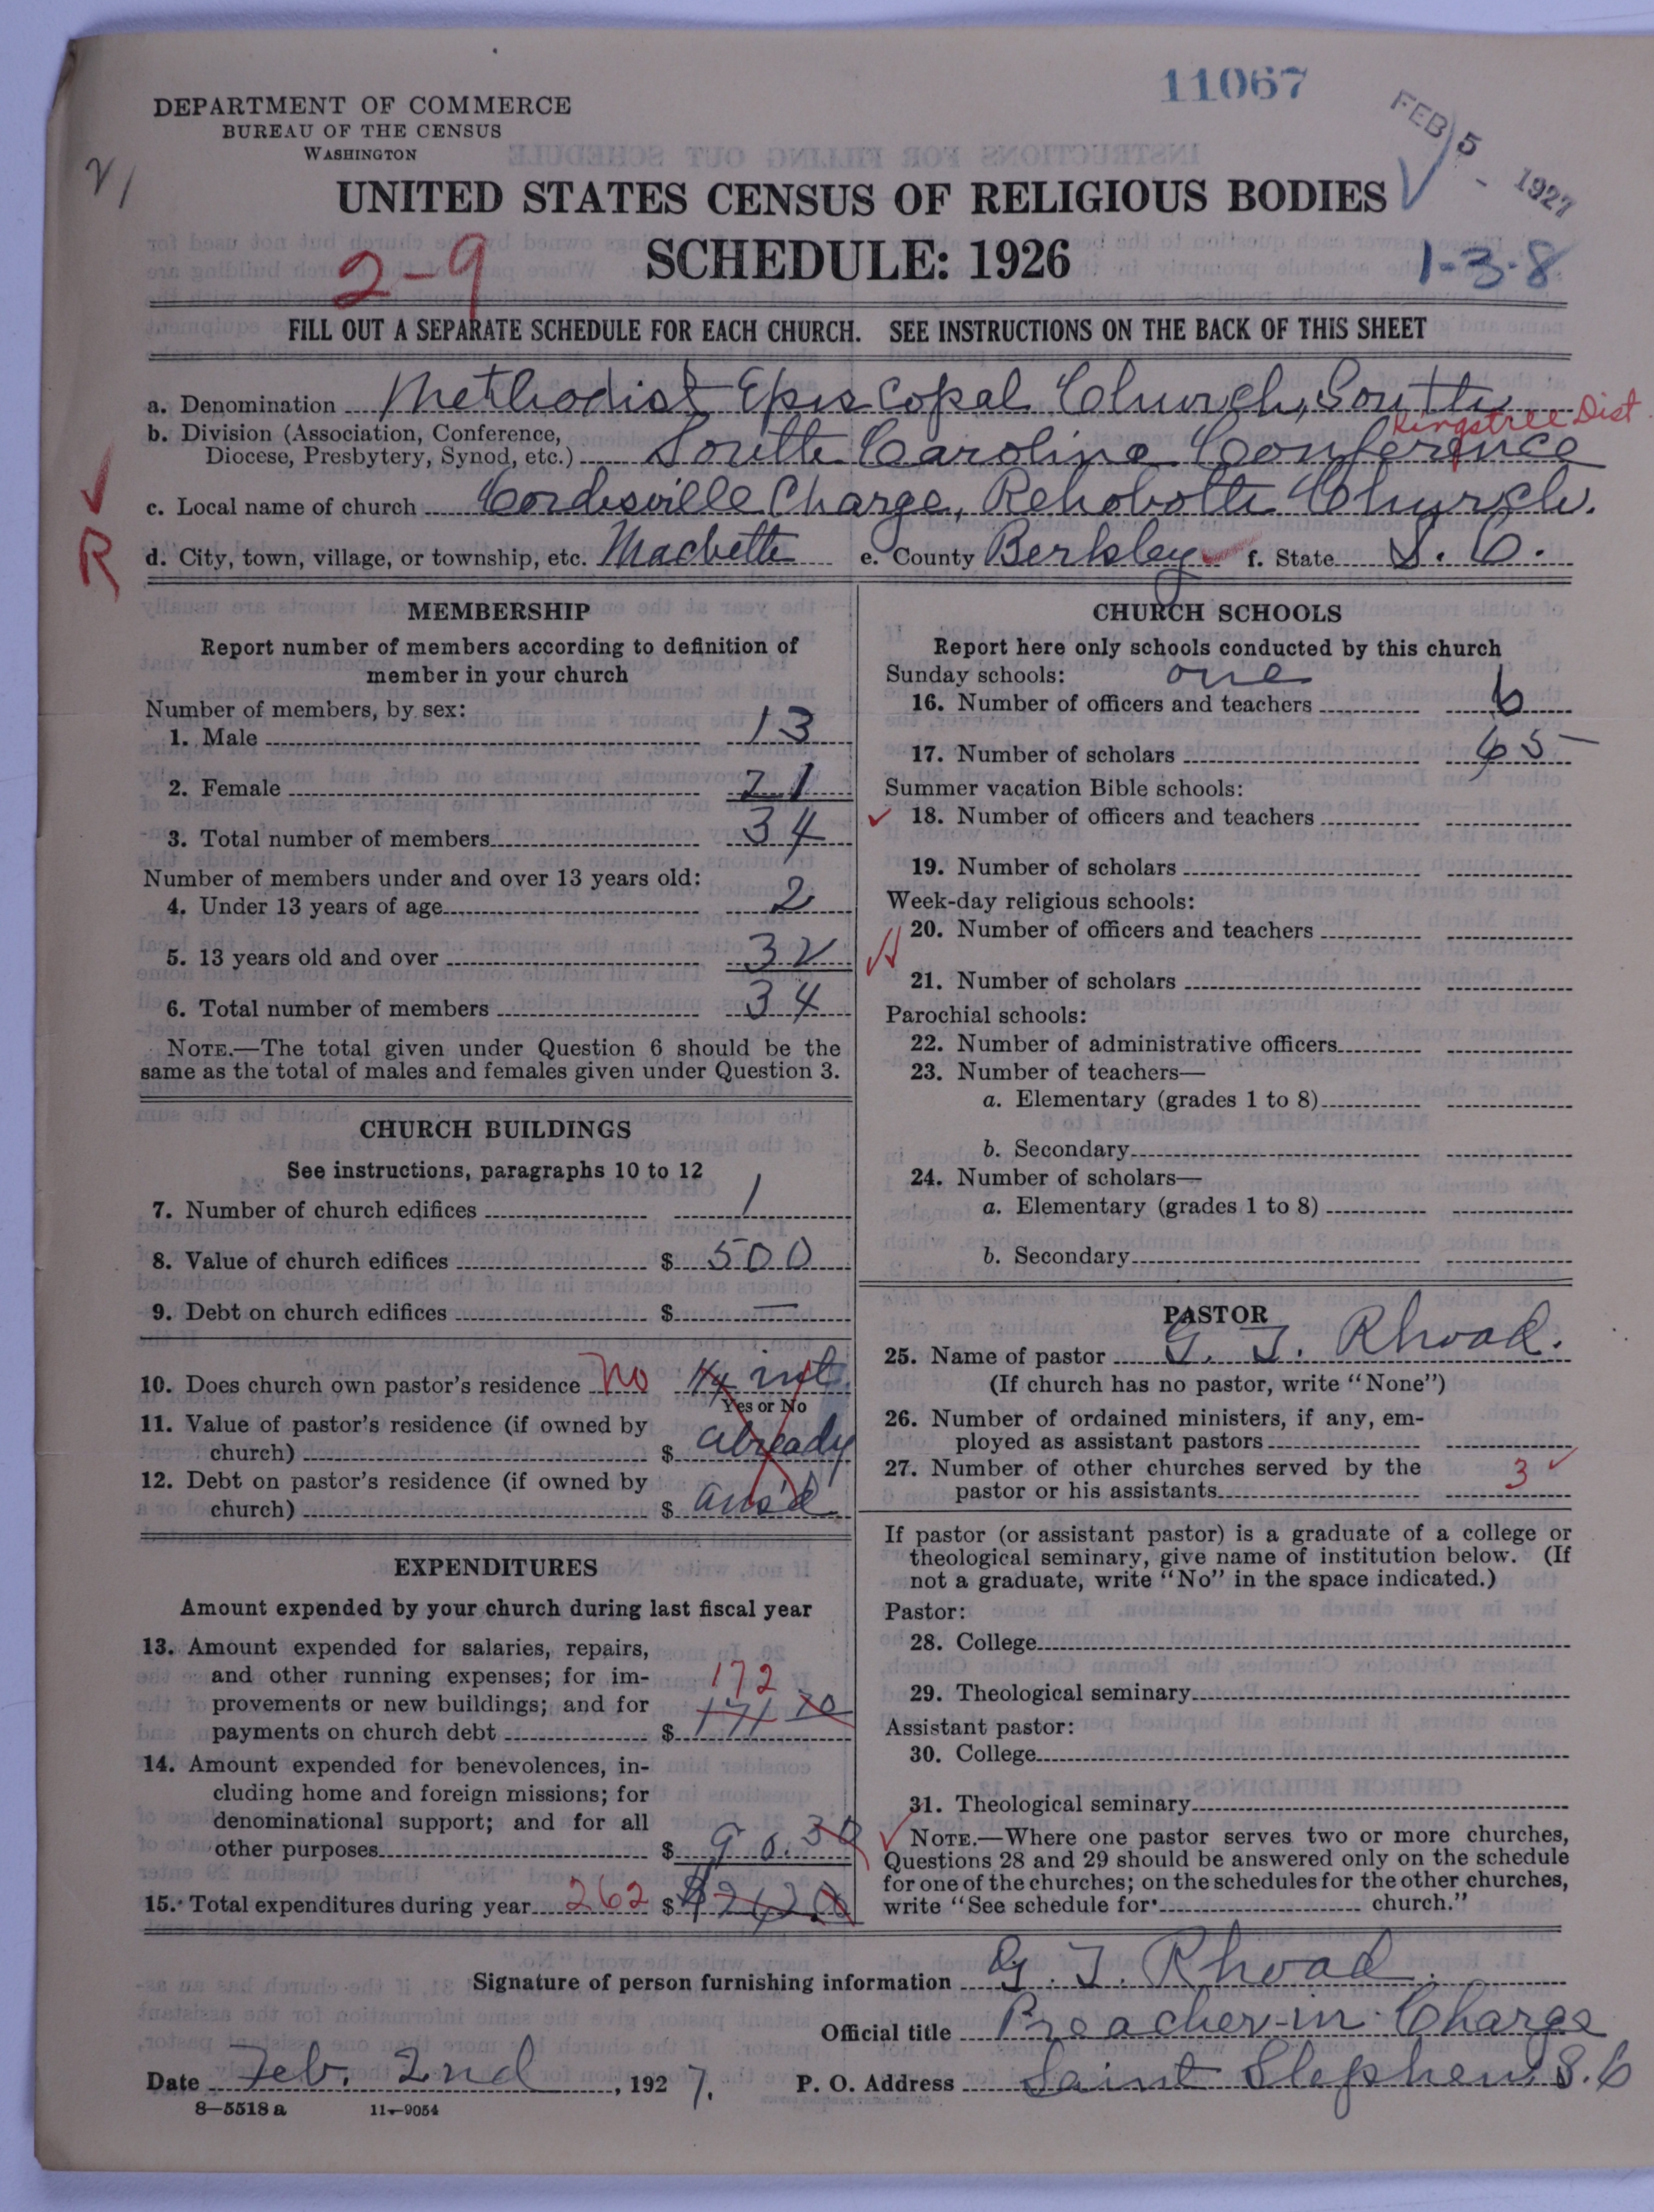 11067
FEB 5 - 1927
DEPARTMENT OF COMMERCE
BUREAU OF THE CENSUS
WASHINGTON
UNITED STATES CENSUS OF RELIGIOUS BODIES
SCHEDULE: 1926
2-9
1-3-8
FILL OUT A SEPARATE SCHEDULE FOR EACH CHURCH. SEE INSTRUCTIONS ON THE BACK OF THIS SHEET
a. Denomination Methodist Episcopal Church, South
Kingstree Dist.
b. Division (Association, Conference,
Diocese, Presbytery, Synod, etc.) South Carolina Conference
c. Local name of church Cordesville Charge, Rehoboth Church.
R
d. City, town, village, or township, etc. Macbeth e. County Berkley f. State S. C.
MEMBERSHIP
Report number of members according to definition of
member in your church
Number of members, by sex:
1. Male 13
2. Female 21
3. Total number of members 34
Number of members under and over 13 years old:
4. Under 13 years of age 2
5. 13 years old and over 32
6. Total number of members 34
NOTE.—The total given under Question 6 should be the
same as the total of males and females given under Question 3.
CHURCH BUILDINGS
See instructions, paragraphs 10 to 12
7. Number of church edifices 1
8. Value of church edifices $ 500
9. Debt on church edifices $ —
10. Does church own pastor's residence No 1/4 int.
Yes or No
11. Value of pastor's residence (if owned by
church) $ already
12. Debt on pastor's residence (if owned by
church) $ ans'd
EXPENDITURES
Amount expended by your church during last fiscal year
13. Amount expended for salaries, repairs,
and other running expenses; for im-
provements or new buildings; and for
172
payments on church debt $ 171 70
14. Amount expended for benevolences, in-
cluding home and foreign missions; for
denominational support; and for all
other purposes $ 90.30
15. Total expenditures during year 262 $
CHURCH SCHOOLS
Report here only schools conducted by this church
Sunday schools: one
16. Number of officers and teachers 6
17. Number of scholars 65
Summer vacation Bible schools:
18. Number of officers and teachers
19. Number of scholars
Week-day religious schools:
20. Number of officers and teachers
21. Number of scholars
Parochial schools:
22. Number of administrative officers
23. Number of teachers—
a. Elementary (grades 1 to 8)
b. Secondary
24. Number of scholars—
a. Elementary (grades 1 to 8)
b. Secondary
PASTOR
25. Name of pastor G. T. Rhoad.
(If church has no pastor, write "None")
26. Number of ordained ministers, if any, em-
ployed as assistant pastors
27. Number of other churches served by the
pastor or his assistants 3
If pastor (or assistant pastor) is a graduate of a college or
theological seminary, give name of institution below. (If
not a graduate, write "No" in the space indicated.)
Pastor:
28. College
29. Theological seminary
Assistant pastor:
30. College
31. Theological seminary
NOTE.—Where one pastor serves two or more churches,
Questions 28 and 29 should be answered only on the schedule
for one of the churches; on the schedules for the other churches,
write "See schedule for church."
Signature of person furnishing information G. T. Rhoad.
Official title Preacher-in-Charge
Date Feb. 2nd, 1927. P. O. Address Saint Stephen, S. C
8—5518 a 11—9054